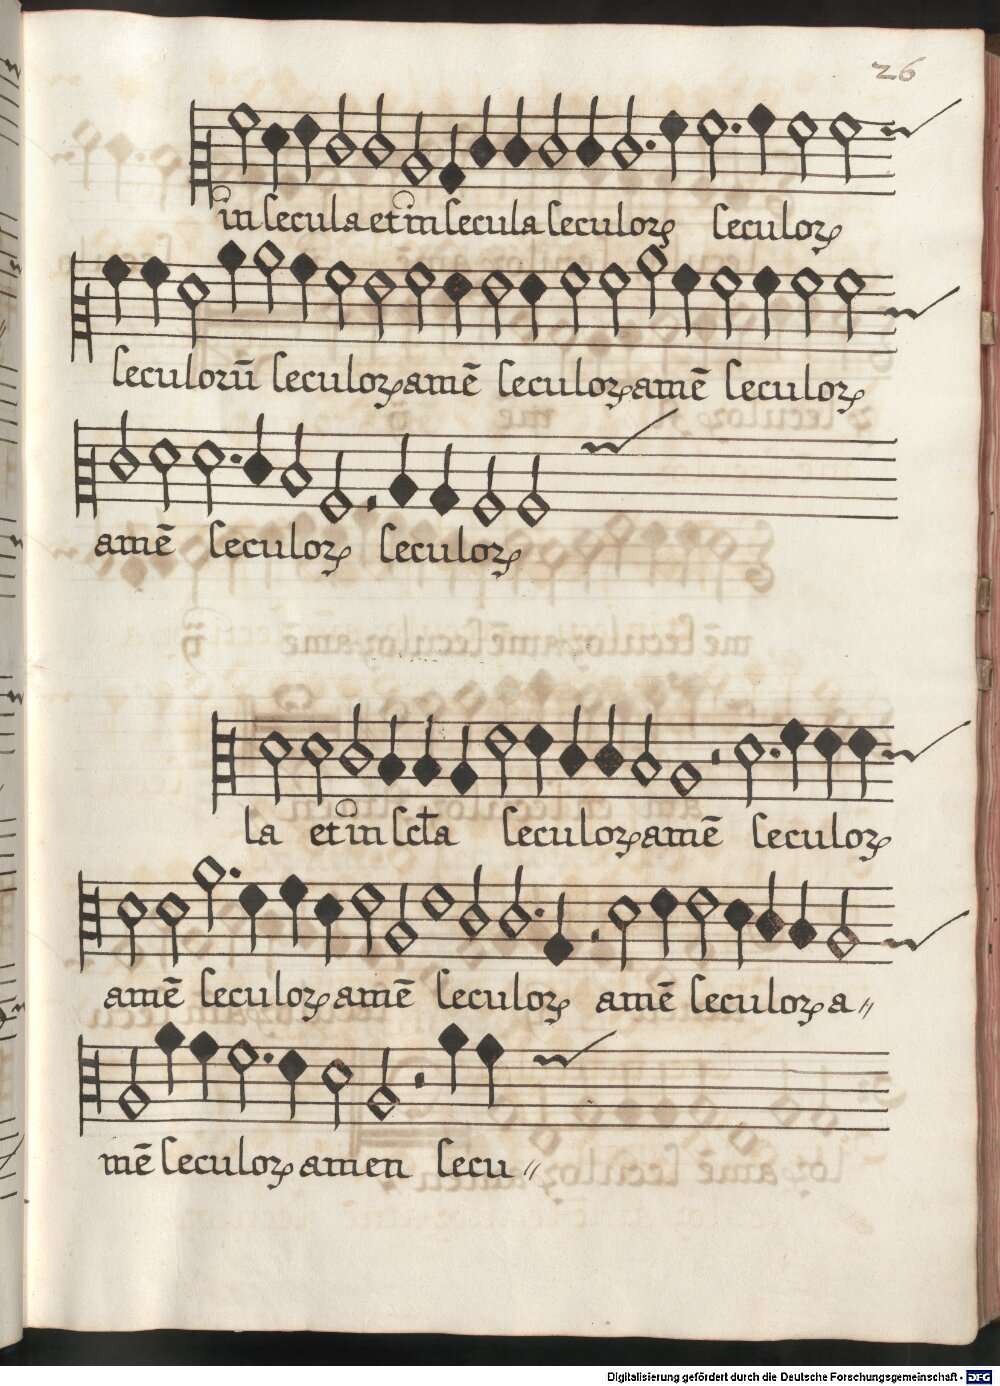 26
in secula et in secula seculoꝝ seculoꝝ
seculorū seculoꝝ amē seculoꝝ amē seculoꝝ
amē seculoꝝ seculoꝝ
la et in scła seculoꝝ amē seculoꝝ
amē seculoꝝ amē seculoꝝ amē seculoꝝ a〃
mē seculoꝝ amen secu〃
Digitalisierung gefördert durch die Deutsche Forschungsgemeinschaft - DFG